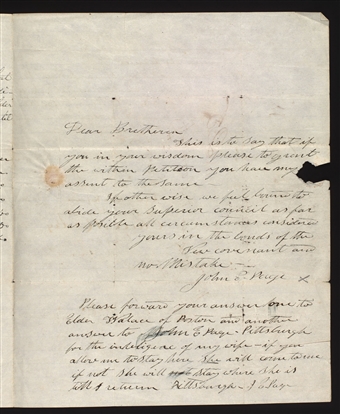 Dear Bretheren
This is to Say that if
you in your wisdom please to grant
the within Petition you have my
assent to the same
If other wise we feel bound to
abide your Superior council as far
as posible all circumstances considered
yours in the bonds of the
New covenant and
no Mistake
John E Page
Please forward your answer one to
Elder of Boston and another
answer to John E Page Pittsburgh
for the indeligence of my wife - if you
allow me to stay here She will come to me
if not She will not stay where She is
till I return Pittsburgh - J E Page